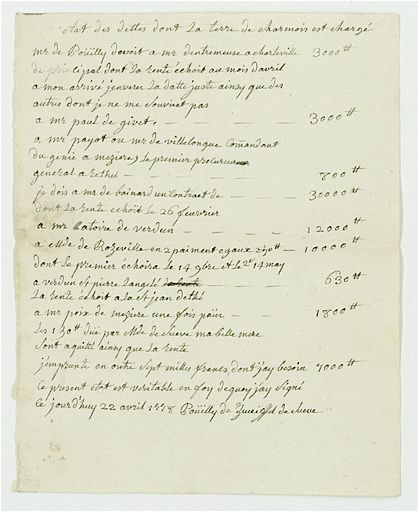 état des dettes dont la terre de charmois est chargé
mr de Poüilly devoit a mr dentremeuse a charleville 3000tt
de principal dont la rente échoit au mois davril
a mon arrivé jenverer la datte juste ainsy que des
autres dont je ne me souvient pas
a mr paul de givet. — — 3000tt
a mr payot ou mr de villelongue Comandant
du genie a meziere, le premier procureur
general a rethel — — — 800tt
je dois a mr de bainard un contract de — 30000tt
dont la rente echoit le 26 feuvrier
a mr batoire de verdun — — — 12000tt
a Mde de Rozeville en 2 paiment egaux — 10000tt
dont le premier échoira le 14 9bre et le 2d 14 may
a verdun st pierre langelé — 630tt
la rente échoit a la st jean dethé
a mr poix de meziere une fois païer — 1800tt
les 130tt düe par Mde de Sueve ma belle mere
sont aquitté ainsy que la rente
jemprunte en outre sept milles francs dont jay besoin 7000tt
Ce present état est veritable en foy de quoy jay signé
Ce jourd'huy 22 avril 1778 Poüilly de Zweiffel de Sueve